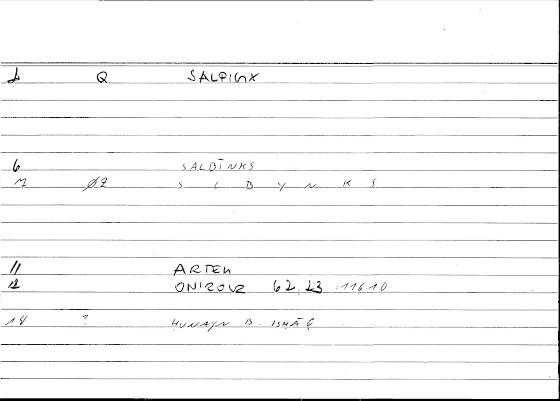 1 Q SALPIGX
6 SALBĪNKS
7 Ø2 S L B Y N K S
11 ARTEM
12 ONIROCR 62,23 :11610
14 ? HUNAYN B. ISHĀQ